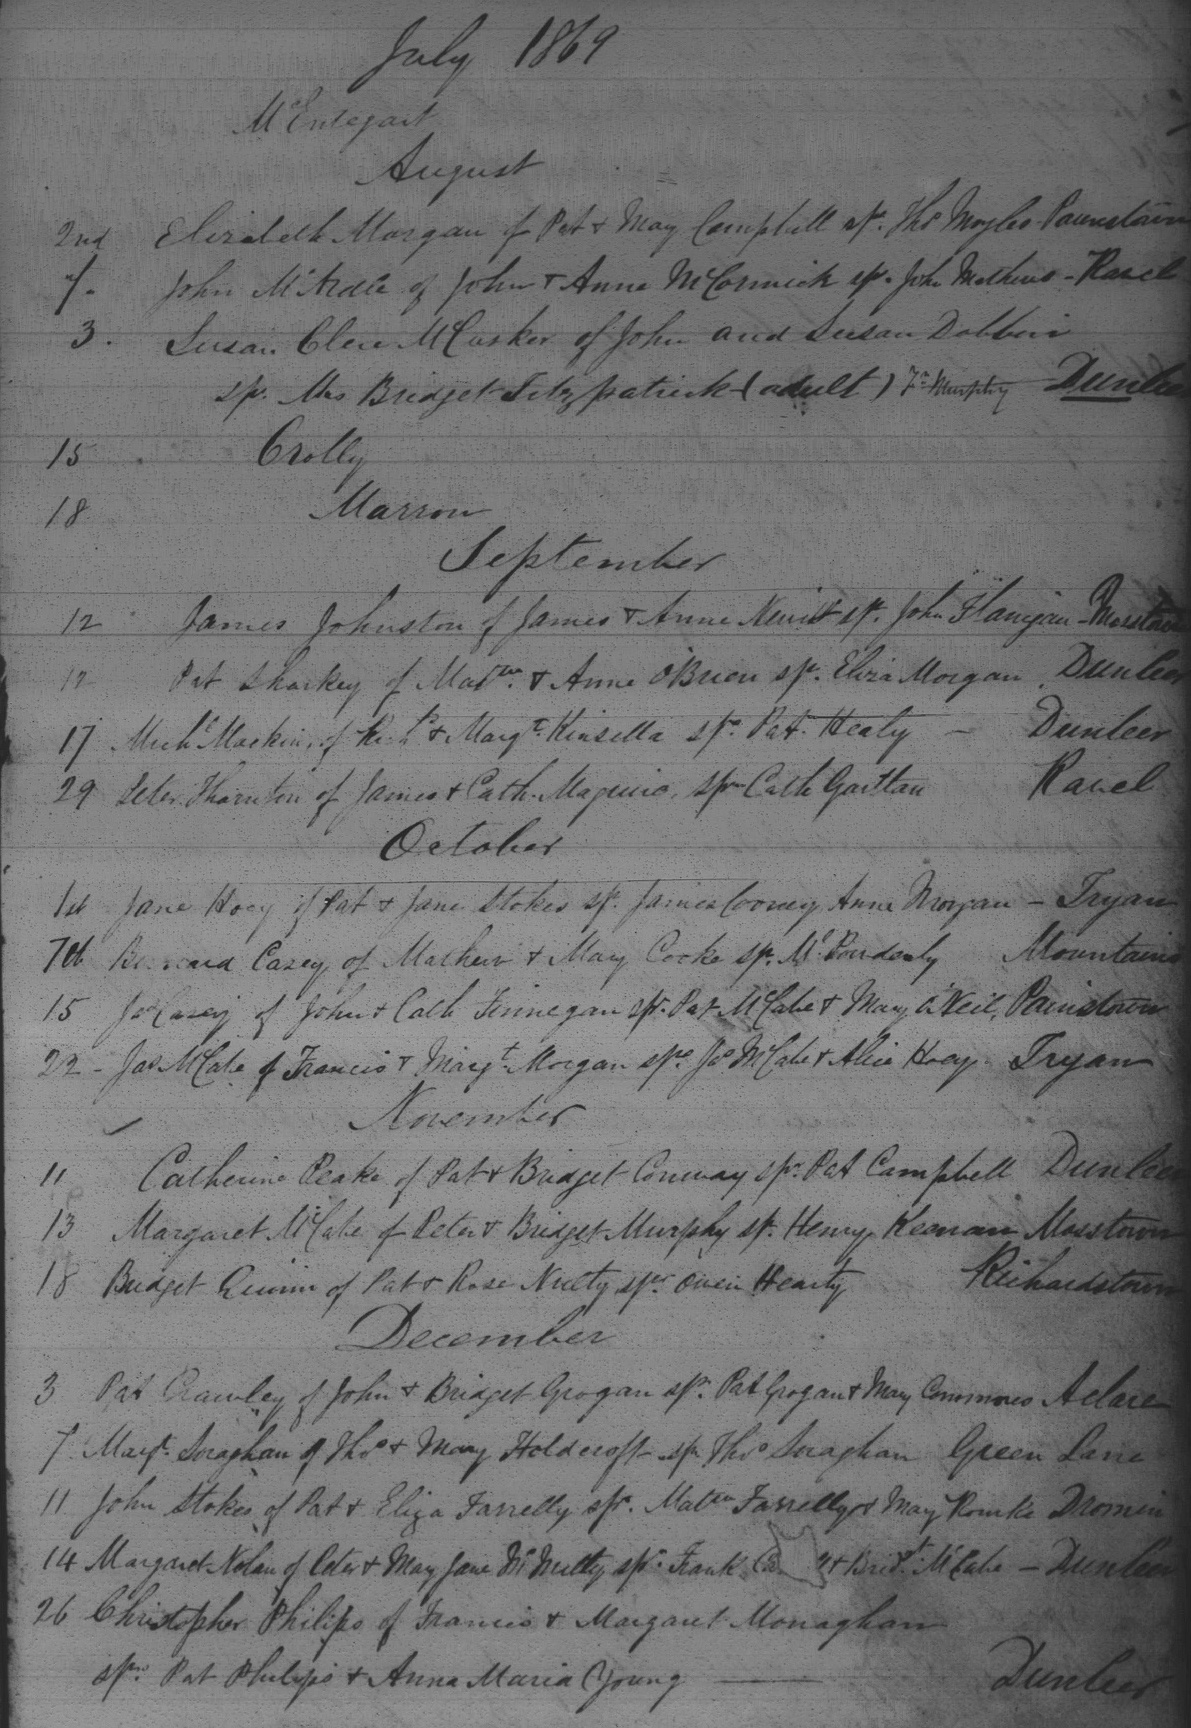 July 1869
McEntegart
August
2nd Elizabeth Morgan of Pat & May Campbell sp. Thos Moyles Painstown
7. John McArdle of John & Anne McCormick sp. John Mathews - Ravel
3. Susan Clere McCusker of John and Susan Dobbin
sp. Mrs Bridget Fitzpatrick (adult) Murphy Dunleer
15 Crolly
18 Marron
September
12 James Johnston of James & Anne sp. John Flanigan - Mosstown
12 Pat Sharkey of Mattw. & Anne O'Brien sp. Eliza Morgan Dunleer
17 Michl Mackin of Richd & Margt. Kinsella sps. Pat. Healy - Dunleer
29 Peter Thornton of James & Cath. Maguire, spr Cath Gartlan Ravel
October
1st Jane Hoey of Pat & Jane Stokes sp. James Cooney Anne Morgan - Tryan
7th Bernard Casey of Mathew & May Cooke sp. Mountains
15 Jas Casey of John & Cath Finnegan spr. Pat McCabe & Mary O'Neil, Painstown
22 - Jas McCabe of Francis & Margt. Morgan sps. Jas McCabe & Alice Hoey. Tryan
November
11 Catherine Peake of Pat & Bridget Conway spr. Pat Campbell Dunleer
13 Margaret McCabe of Peter & Bridget Murphy sp. Henry Keenan Mosstown
18 Bridget Quinn of Pat & Rose Nulty spr. Owen Hearty Richardstown
December
3 Pat Crawley of John & Bridget Grogan spr. Pat Grogan & May Commons Aclare
7. Margt. Soraghan of Thos & Mary Holdcroft sp. Thos Soraghan Green Lane
11 John Stokes of Pat & Eliza Farrelly spr. Mattw Farrelly & May Rourke Dromin
14 Margaret Nolan of Peter & May Jane McNulty spr. Frank & Bridt. McCabe - Dunleer
26 Christopher Philips of Francis & Margaret Monaghan
sprs Pat Philips & Anna Maria Young Dunleer